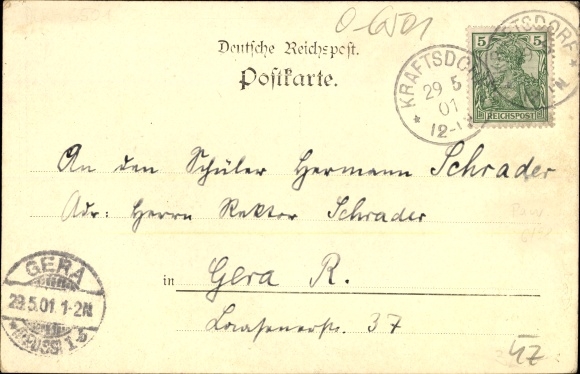 O-6501
Deutsche Reichspost.
Postkarte.
5 5
REICHSPOST
KRAFTSDORF
29 5
01
12-1
KRAFTSDORF
N
An den Schüler Hermann Schrader
Adr: Herrn Rektor Schrader
in Gera R.
37
GERA
29.5.01. 1-2N
(REUSS) 1.b